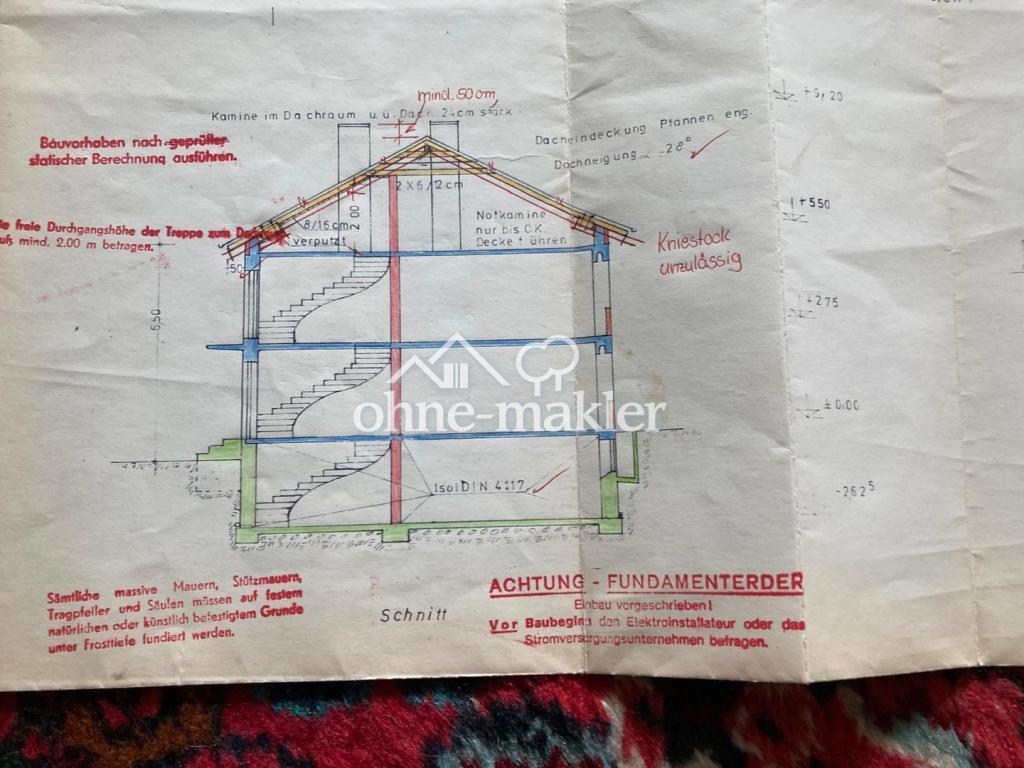 mind. 50 cm
Kamine im Dachraum u. ü. Dach 24cm stark
+5,20
Bauvorhaben nach geprüfter
statischer Berechnung ausführen.
Dacheindeckung Pfannen eng.
Dachneigung 28°
2 X 6/12 cm
2.00
8/16 cm
verputzt
Notkamine
nur bis OK.
Decke führen
+550
freie Durchgangshöhe der Treppe zum
mind. 2.00 m betragen.
Kniestock
unzulässig
50
+275
5,50
ohne-makler
±0.00
Isol DIN 4117
-262⁵
Sämtliche massive Mauern, Stützmauern,
Tragpfeiler und Säulen müssen auf festem
natürlichen oder künstlich befestigtem Grunde
unter Frosttiefe fundiert werden.
Schnitt
ACHTUNG - FUNDAMENTERDER
Einbau vorgeschrieben!
Vor Baubeginn den Elektroinstallateur oder das
Stromversorgungsunternehmen befragen.